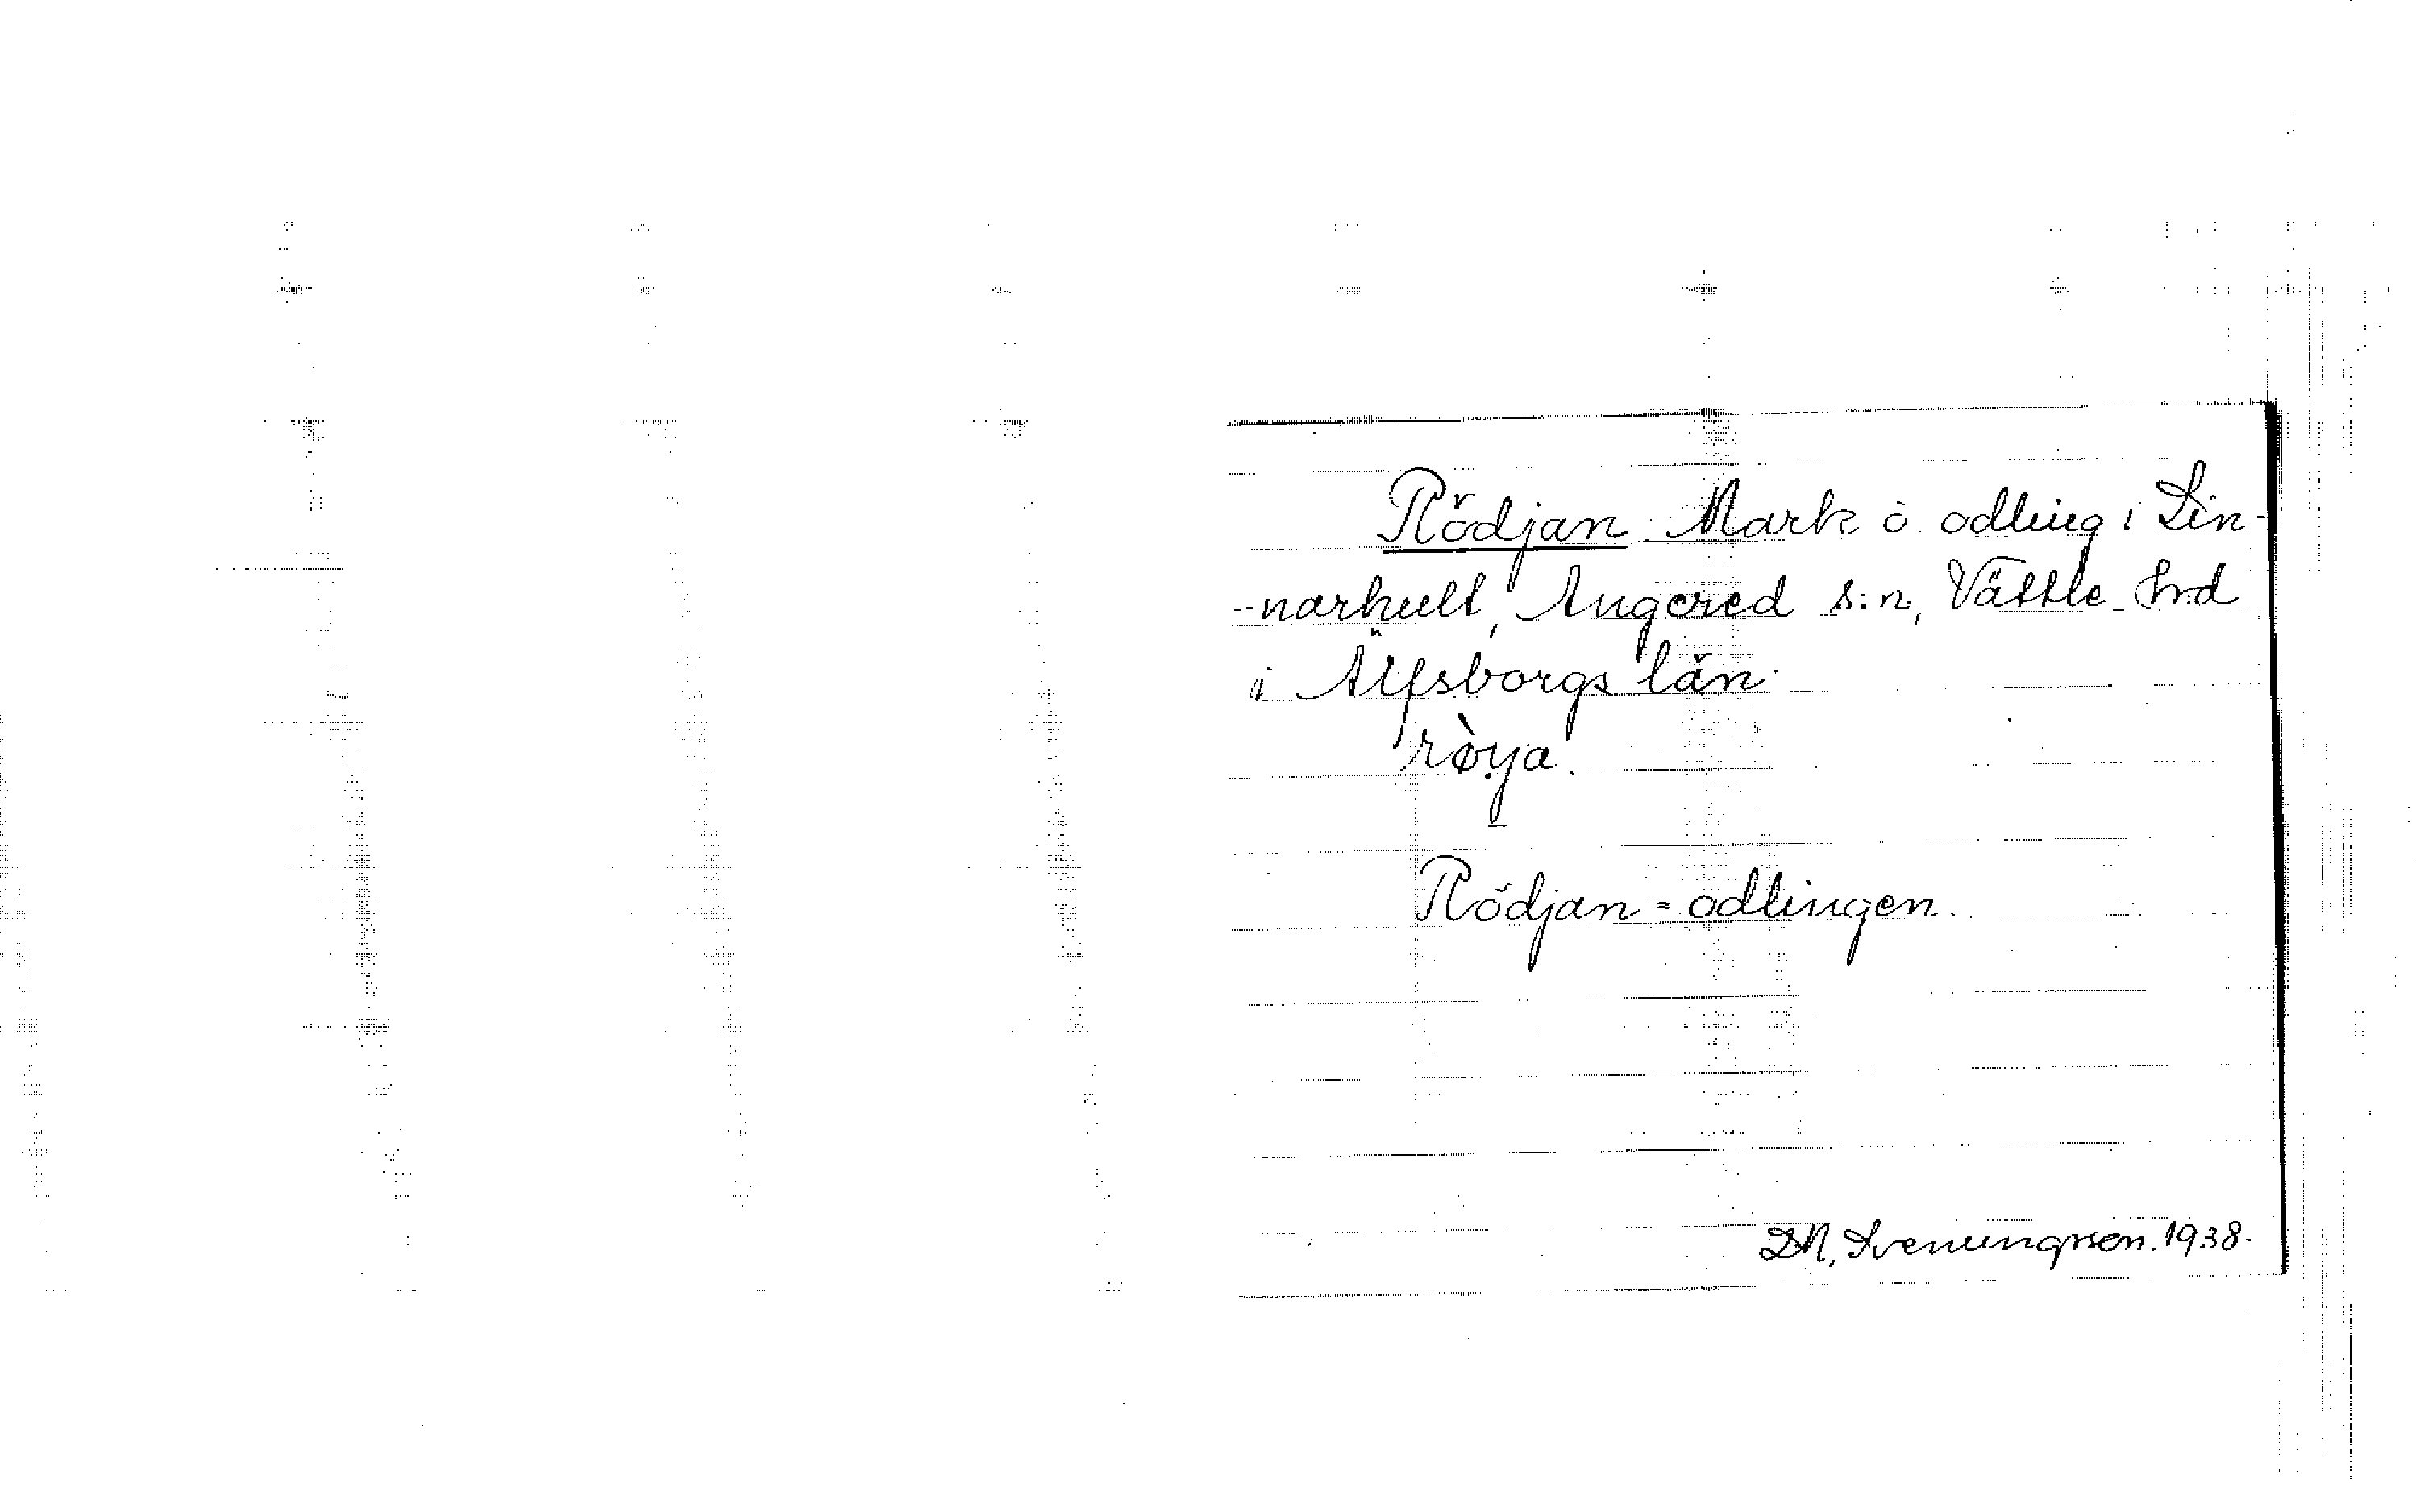 Rödjan Mark o. odling i Lin-
-narhult, Angered s:n, Vättle hrd
i Älfsborgs län.
rø̀ya.
Rödjan = odlingen.
D.N. Svenungsson. 1938.